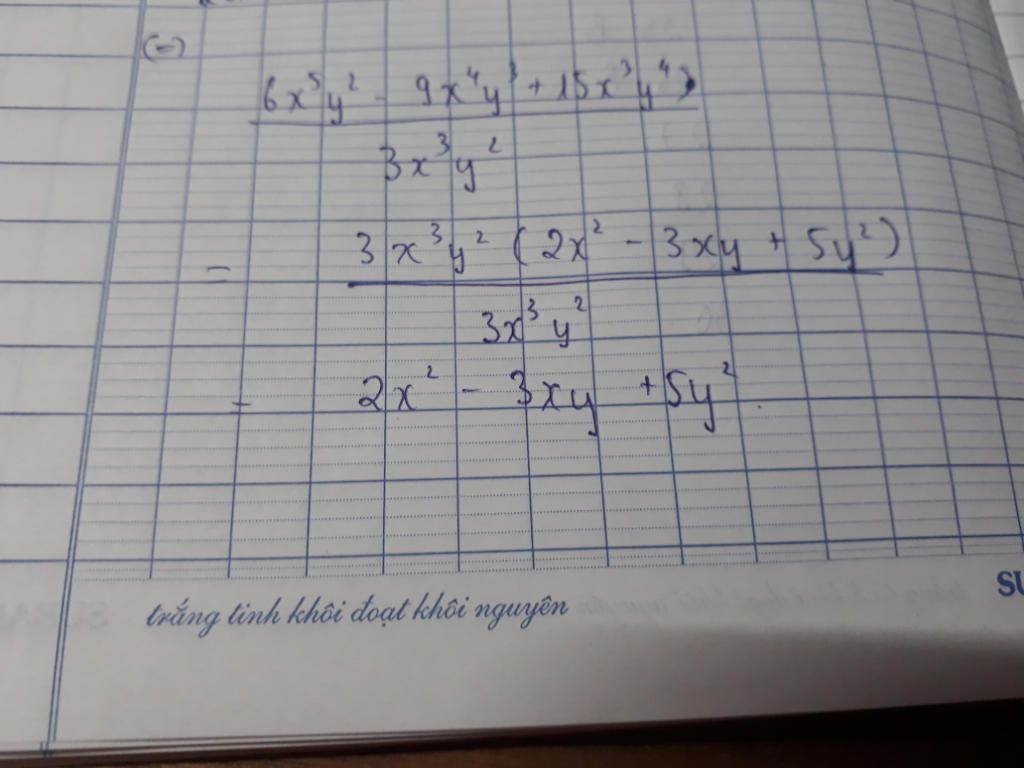 (=)
6x⁵y² - 9x⁴y³ + 15x³y⁴)
3x³y²
= 3x³y² (2x² - 3xy + 5y²)
3x³y²
= 2x² - 3xy + 5y²
trắng tinh khôi đoạt khôi nguyên
SU